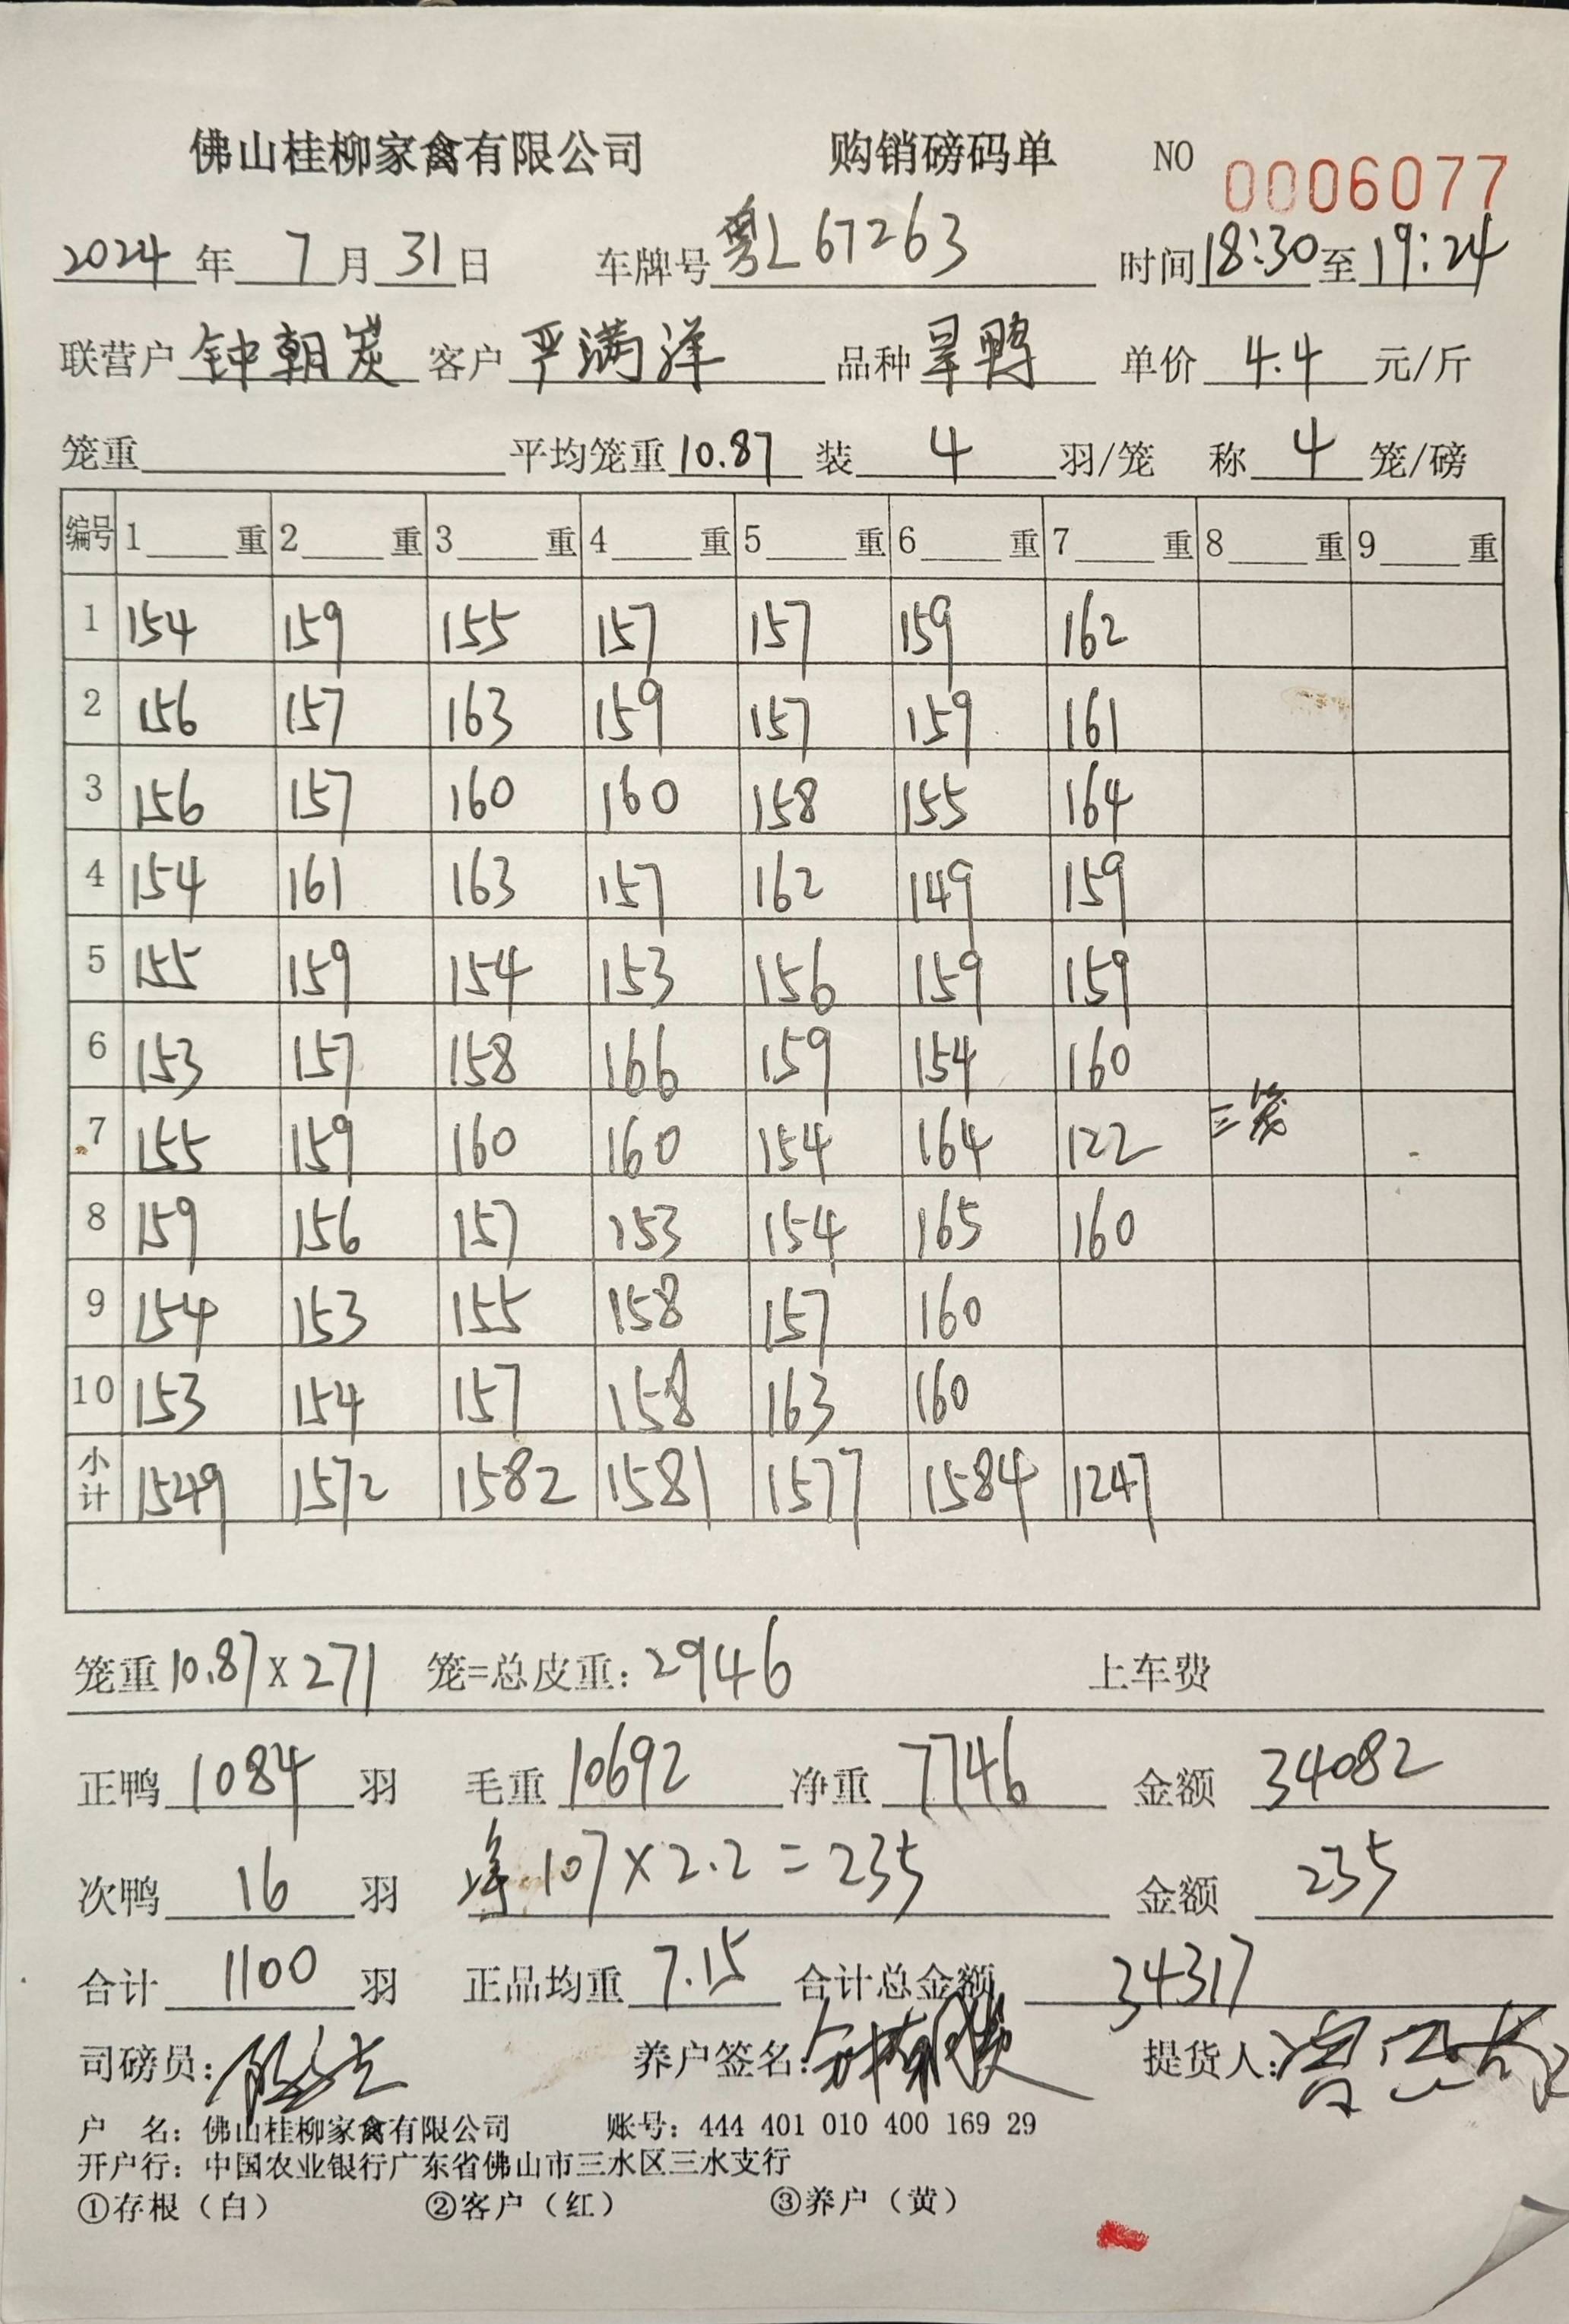 佛山桂柳家禽有限公司 购销磅码单 NO 0006077
2024年 7月31日 车牌号 粤L67263 时间18:30至19:24
联营户 钟朝炭 客户 严满洋 品种 旱鸭 单价 4.4 元/斤
笼重 平均笼重10.87 装 4 羽/笼 称 4 笼/磅
编号 1 重 2 重 3 重 4 重 5 重 6 重 7 重 8 重 9 重
1 154 159 155 157 157 159 162
2 156 157 163 159 157 159 161
3 156 157 160 160 158 155 164
4 154 161 163 157 162 149 159
5 155 159 154 153 156 159 159
6 153 157 158 166 159 154 160
7 155 159 160 160 154 164 122 三笼
8 159 156 157 153 154 165 160
9 154 153 155 158 157 160
10 153 154 157 158 163 160
小计 1549 1572 1582 1581 1577 1584 1247
笼重10.87X271 笼=总皮重:2946 上车费
正鸭 1084 羽 毛重 10692 净重 7746 金额 34082
次鸭 16 羽 净107×2.2=235 金额 235
合计 1100 羽 正品均重 7.15 合计总金额 34317
司磅员: 养户签名: 提货人:
户 名: 佛山桂柳家禽有限公司 账号: 444 401 010 400 169 29
开户行: 中国农业银行广东省佛山市三水区三水支行
①存根(白) ②客户(红) ③养户(黄)